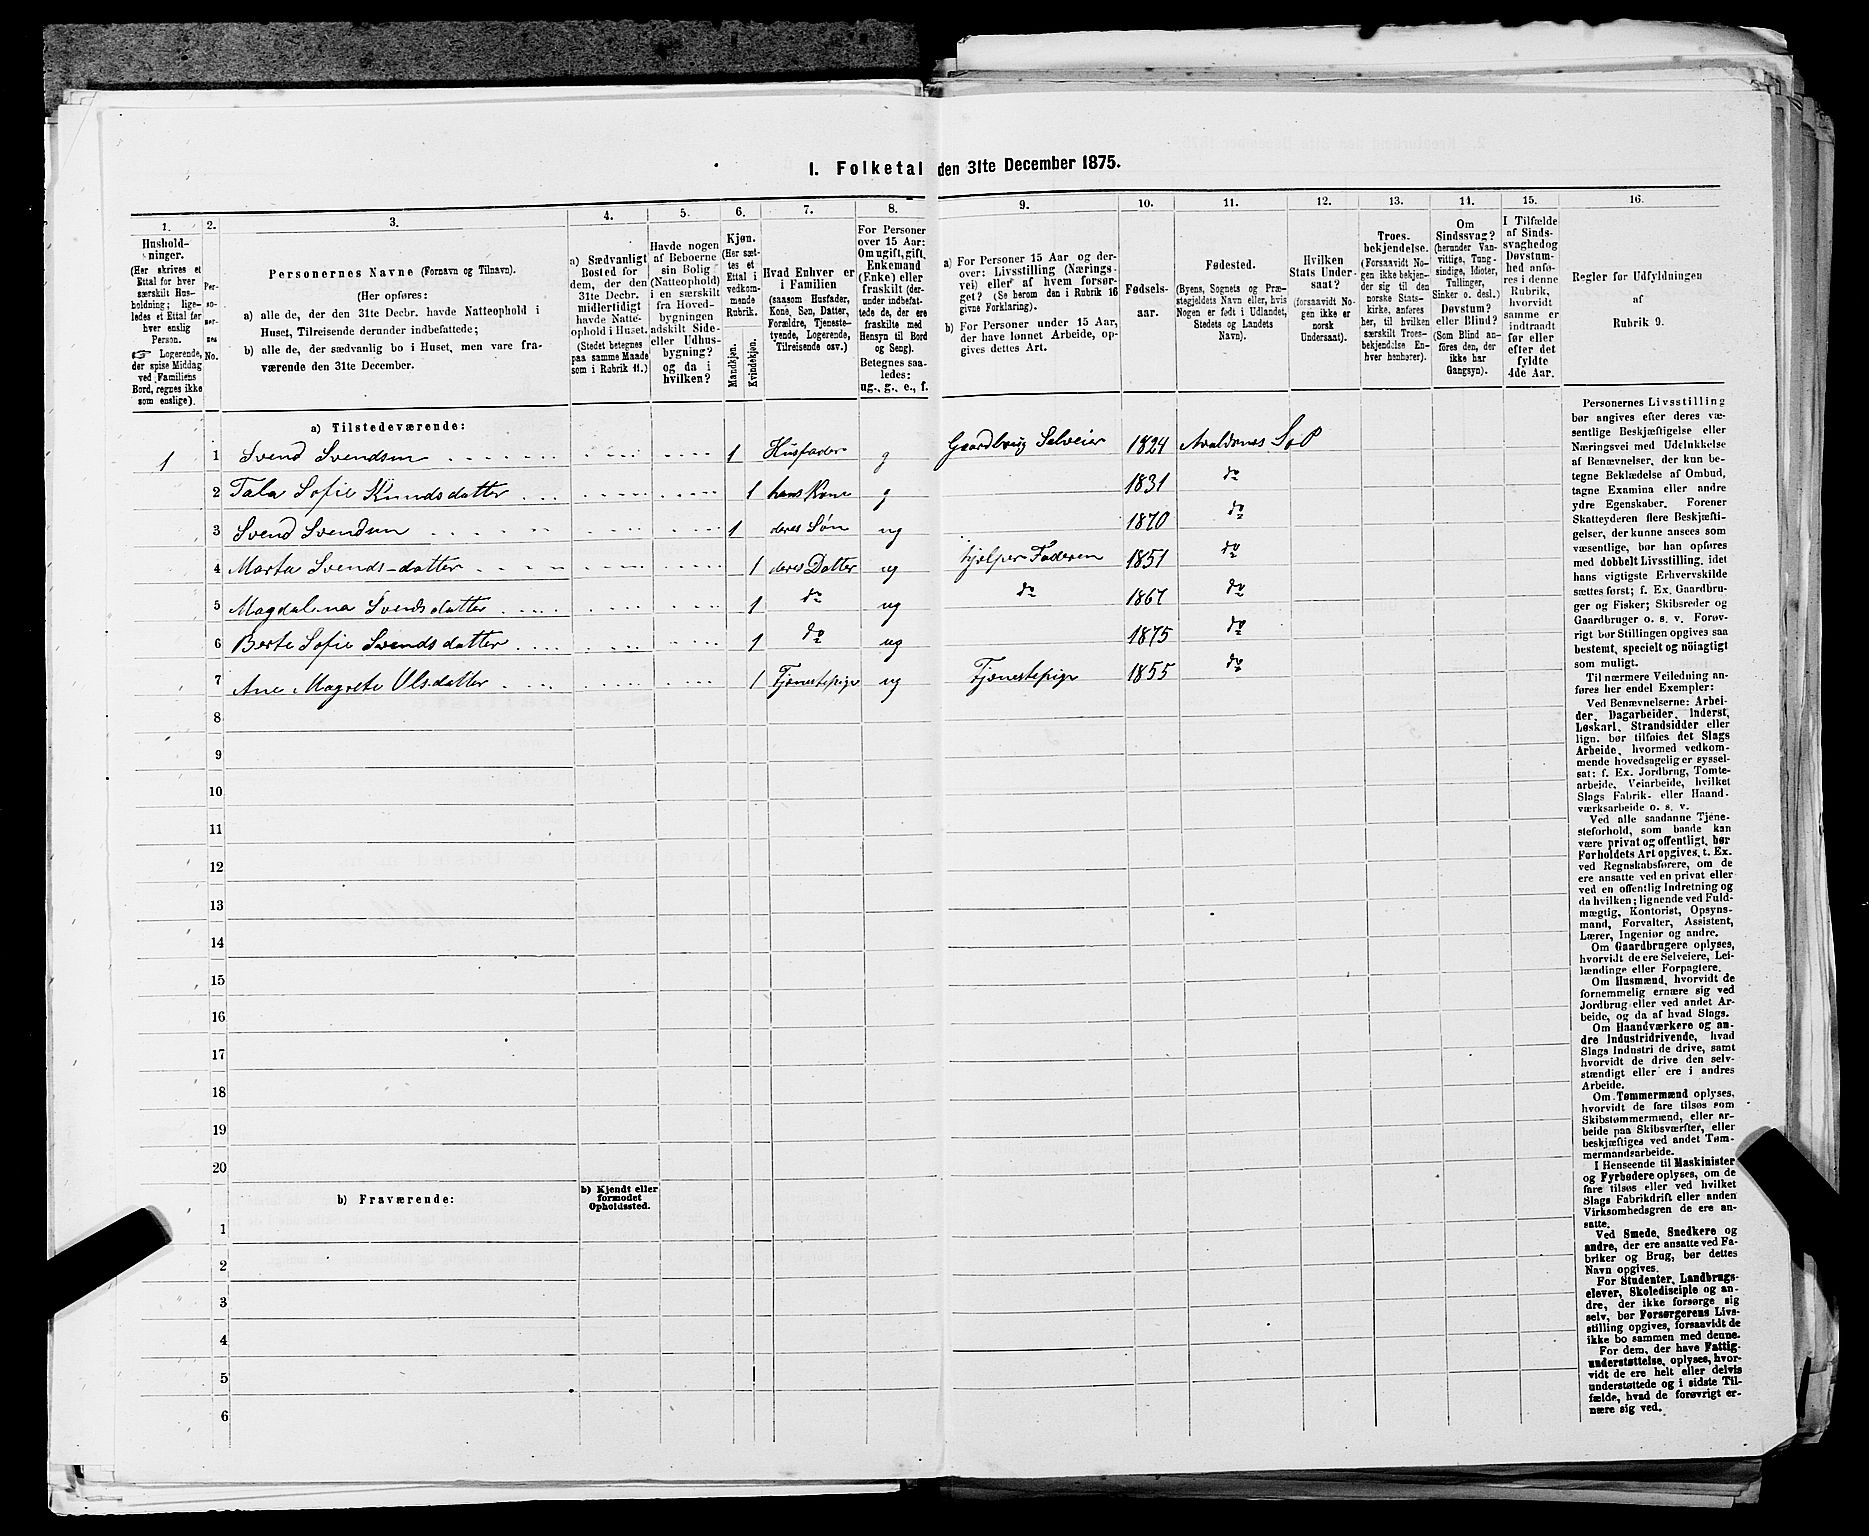 I. Folketal den 31te December 1875.
1. 2. 3. 4. 5. 6. 7. 8. 9. 10. 11. 12. 13. 14. 15. 16.
Hushold-
ninger.
(Her skrives et
Ettal for hver
særskilt Hus-
holdning; lige-
ledes et Ettal for
hver enslig
Person.
☞ Logerende,
der spise Middag
ved Familiens
Bord, regnes ikke
som enslige).
Per-
so-
ner-
nes
No.
Personernes Navne (Fornavn og Tilnavn).
(Her opføres:
a) alle de, der den 31te Decbr. havde Natteophold i
Huset, Tilreisende derunder indbefattede;
b) alle de, der sædvanlig bo i Huset, men vare fra-
værende den 31te December.
a) Sædvanligt
Bosted for
dem, der den
31te Decbr.
midlertidigt
havde Natte-
ophold i Huset.
(Stedet betegnes
paa samme Maade
som i Rubrik 11.)
Havde nogen
af Beboerne
sin Bolig
(Natteophold)
i en særskilt
fra Hoved-
bygningen
adskilt Side-
eller Udhus-
bygning?
og da i
hvilken?
Kjøn.
(Her sæt-
tes et
Ettal i
vedkom-
mende
Rubrik.
Mandkjøn.
Kvindekjøn.
Hvad Enhver er
i Familien
(saasom Husfader,
Kone, Søn, Datter,
Forældre, Tjeneste-
tyende, Logerende,
Tilreisende osv.)
For Personer
over 15 Aar:
Om ugift, gift,
Enkemand
(Enke) eller
fraskilt (der-
under indbefat-
tede de, der ere
fraskilte med
Hensyn til Bord
og Seng).
Betegnes saa-
ledes:
ug., g., e., f.
a) For Personer 15 Aar og der-
over: Livsstilling (Nærings-
vei) eller af hvem forsør-
get? (Se herom den i Rubrik 16
givne Forklaring).
b) For Personer under 15 Aar,
der have lønnet Arbeide, op-
gives dettes Art.
Fødsels-
aar.
Fødested.
(Byens, Sognets og Præ-
stegjeldets Navn eller, hvis
Nogen er født i Udlandet,
Stedets og Landets
Navn).
Hvilken
Stats Under-
saat?
(forsaavidt No-
gen ikke er
norsk
Undersaat).
Troes-
bekjendelse.
(Forsaavidt No-
gen ikke bekjen-
der sig til den
norske Stats-
kirke, anføres
her, til hvilken
særskilt Troes-
bekjendelse En-
hver henhører).
Om
Sindssvag?
(herunder Van-
vittige, Tung-
sindige, Idioter,
Sinker o. desl.)
Døvstum?
eller Blind?
(Som Blind an-
føres den, der
ikke har
Gangsyn).
I Tilfælde
af Sinds-
svaghed og
Døvstum-
hed anfø-
res i denne
Rubrik,
hvorvidt
samme er
indtraadt
før eller
efter det
fyldte
4de Aar.
Regler for Udfyldningen
af
Rubrik 9.
a) Tilstedeværende:
1 1 Svend Svendsen 1 Husfader g Gaardbrug Selveier 1824 Avaldsnes S. P
2 Tala Sofie Knudsdatter 1 hans Kone g 1831 do
3 Svend Svendsen 1 deres Søn ug 1870 do
4 Marta Svends-datter 1 deres Datter ug hjelper Faderen 1851 do
5 Magdalena Svendsdatter 1 do ug do 1867 do
6 Berte Sofie Svendsdatter 1 do ug 1875 do
7 Ane Magrete Olsdatter 1 Tjenestepige ug Tjenestepige 1855 do
8
9
10
11
12
13
14
15
16
17
18
19
20
b) Fraværende:
b) Kjendt eller
formodet
Opholdssted.
1
2
3
4
5
6
Personernes Livsstilling
bør angives efter deres væ-
sentlige Beskjæftigelse eller
Næringsvei med Udelukkelse
af Benævnelser, der kun be-
tegne Beklædelse af Ombud,
tagne Examina eller andre
ydre Egenskaber. Forener
Skatteyderen flere Beskjæfti-
gelser, der kunne ansees som
væsentlige, bør han opføres
med dobbelt Livsstilling, idet
hans vigtigste Erhvervskilde
sættes først; f. Ex. Gaardbru-
ger og Fisker; Skibsreder og
Gaardbruger o. s. v. Forøv-
rigt bør Stillingen opgives saa
bestemt, specielt og nöiagtigt
som muligt.
Til nærmere Veiledning an-
føres her endel Exempler:
Ved Benævnelserne: Arbei-
der, Dagarbeider, Inderst,
Løskarl, Strandsidder eller
lign. bør tilføies det Slags
Arbeide, hvormed vedkom-
mende hovedsagelig er syssel-
sat; f. Ex. Jordbrug, Tomte-
arbeide, Veiarbeide, hvilket
Slags Fabrik- eller Haand-
værksarbeide o. s. v.
Ved alle saadanne Tjene-
steforhold, som baade kan
være privat og offentligt, bør
Forholdets Art opgives, t. Ex.
ved Regnskabsførere, om de
ere ansatte ved en privat eller
ved en offentlig Indretning og
da hvilken; lignende ved Fuld-
mægtig, Kontorist, Opsyns-
mand, Forvalter, Assistent,
Lærer, Ingeniør og andre.
Om Gaardbrugere oplyses,
hvorvidt de ere Selveiere, Lei-
lændinge eller Forpagtere.
Om Husmænd, hvorvidt de
fornemmelig ernære sig ved
Jordbrug eller ved andet Ar-
beide, og da af hvad Slags.
Om Haandværkere og an-
dre Industridrivende, hvad
Slags Industri de drive, samt
hvorvidt de drive den selv-
stændigt eller ere i andres
Arbeide.
Om Tømmermænd oplyses,
hvorvidt de fare tilsøs som
Skibstømmermænd, eller ar-
beide paa Skibsværfter, eller
beskjæftiges ved andet Tøm-
mermandsarbeide.
I Henseende til Maskinister
og Fyrbødere oplyses, om de
fare tilsøs eller ved hvilket
Slags Fabrikdrift eller anden
Virksomhedsgren de ere an-
satte.
Ved Smede, Snedkere og
andre, der ere ansatte ved Fa-
briker og Brug, bør dettes
Navn opgives.
For Studenter, Landbrugs-
elever, Skoledisciple og an-
dre, der ikke forsørge sig
selv, bør Forsørgerens Livs-
stilling opgives, forsaavidt de
ikke bo sammen med denne.
For dem, der have Fattig-
understøttelse, oplyses, hvor-
vidt de ere helt eller delvis
understøttede og i sidste Til-
fælde, hvad de forøvrigt er-
nære sig ved.